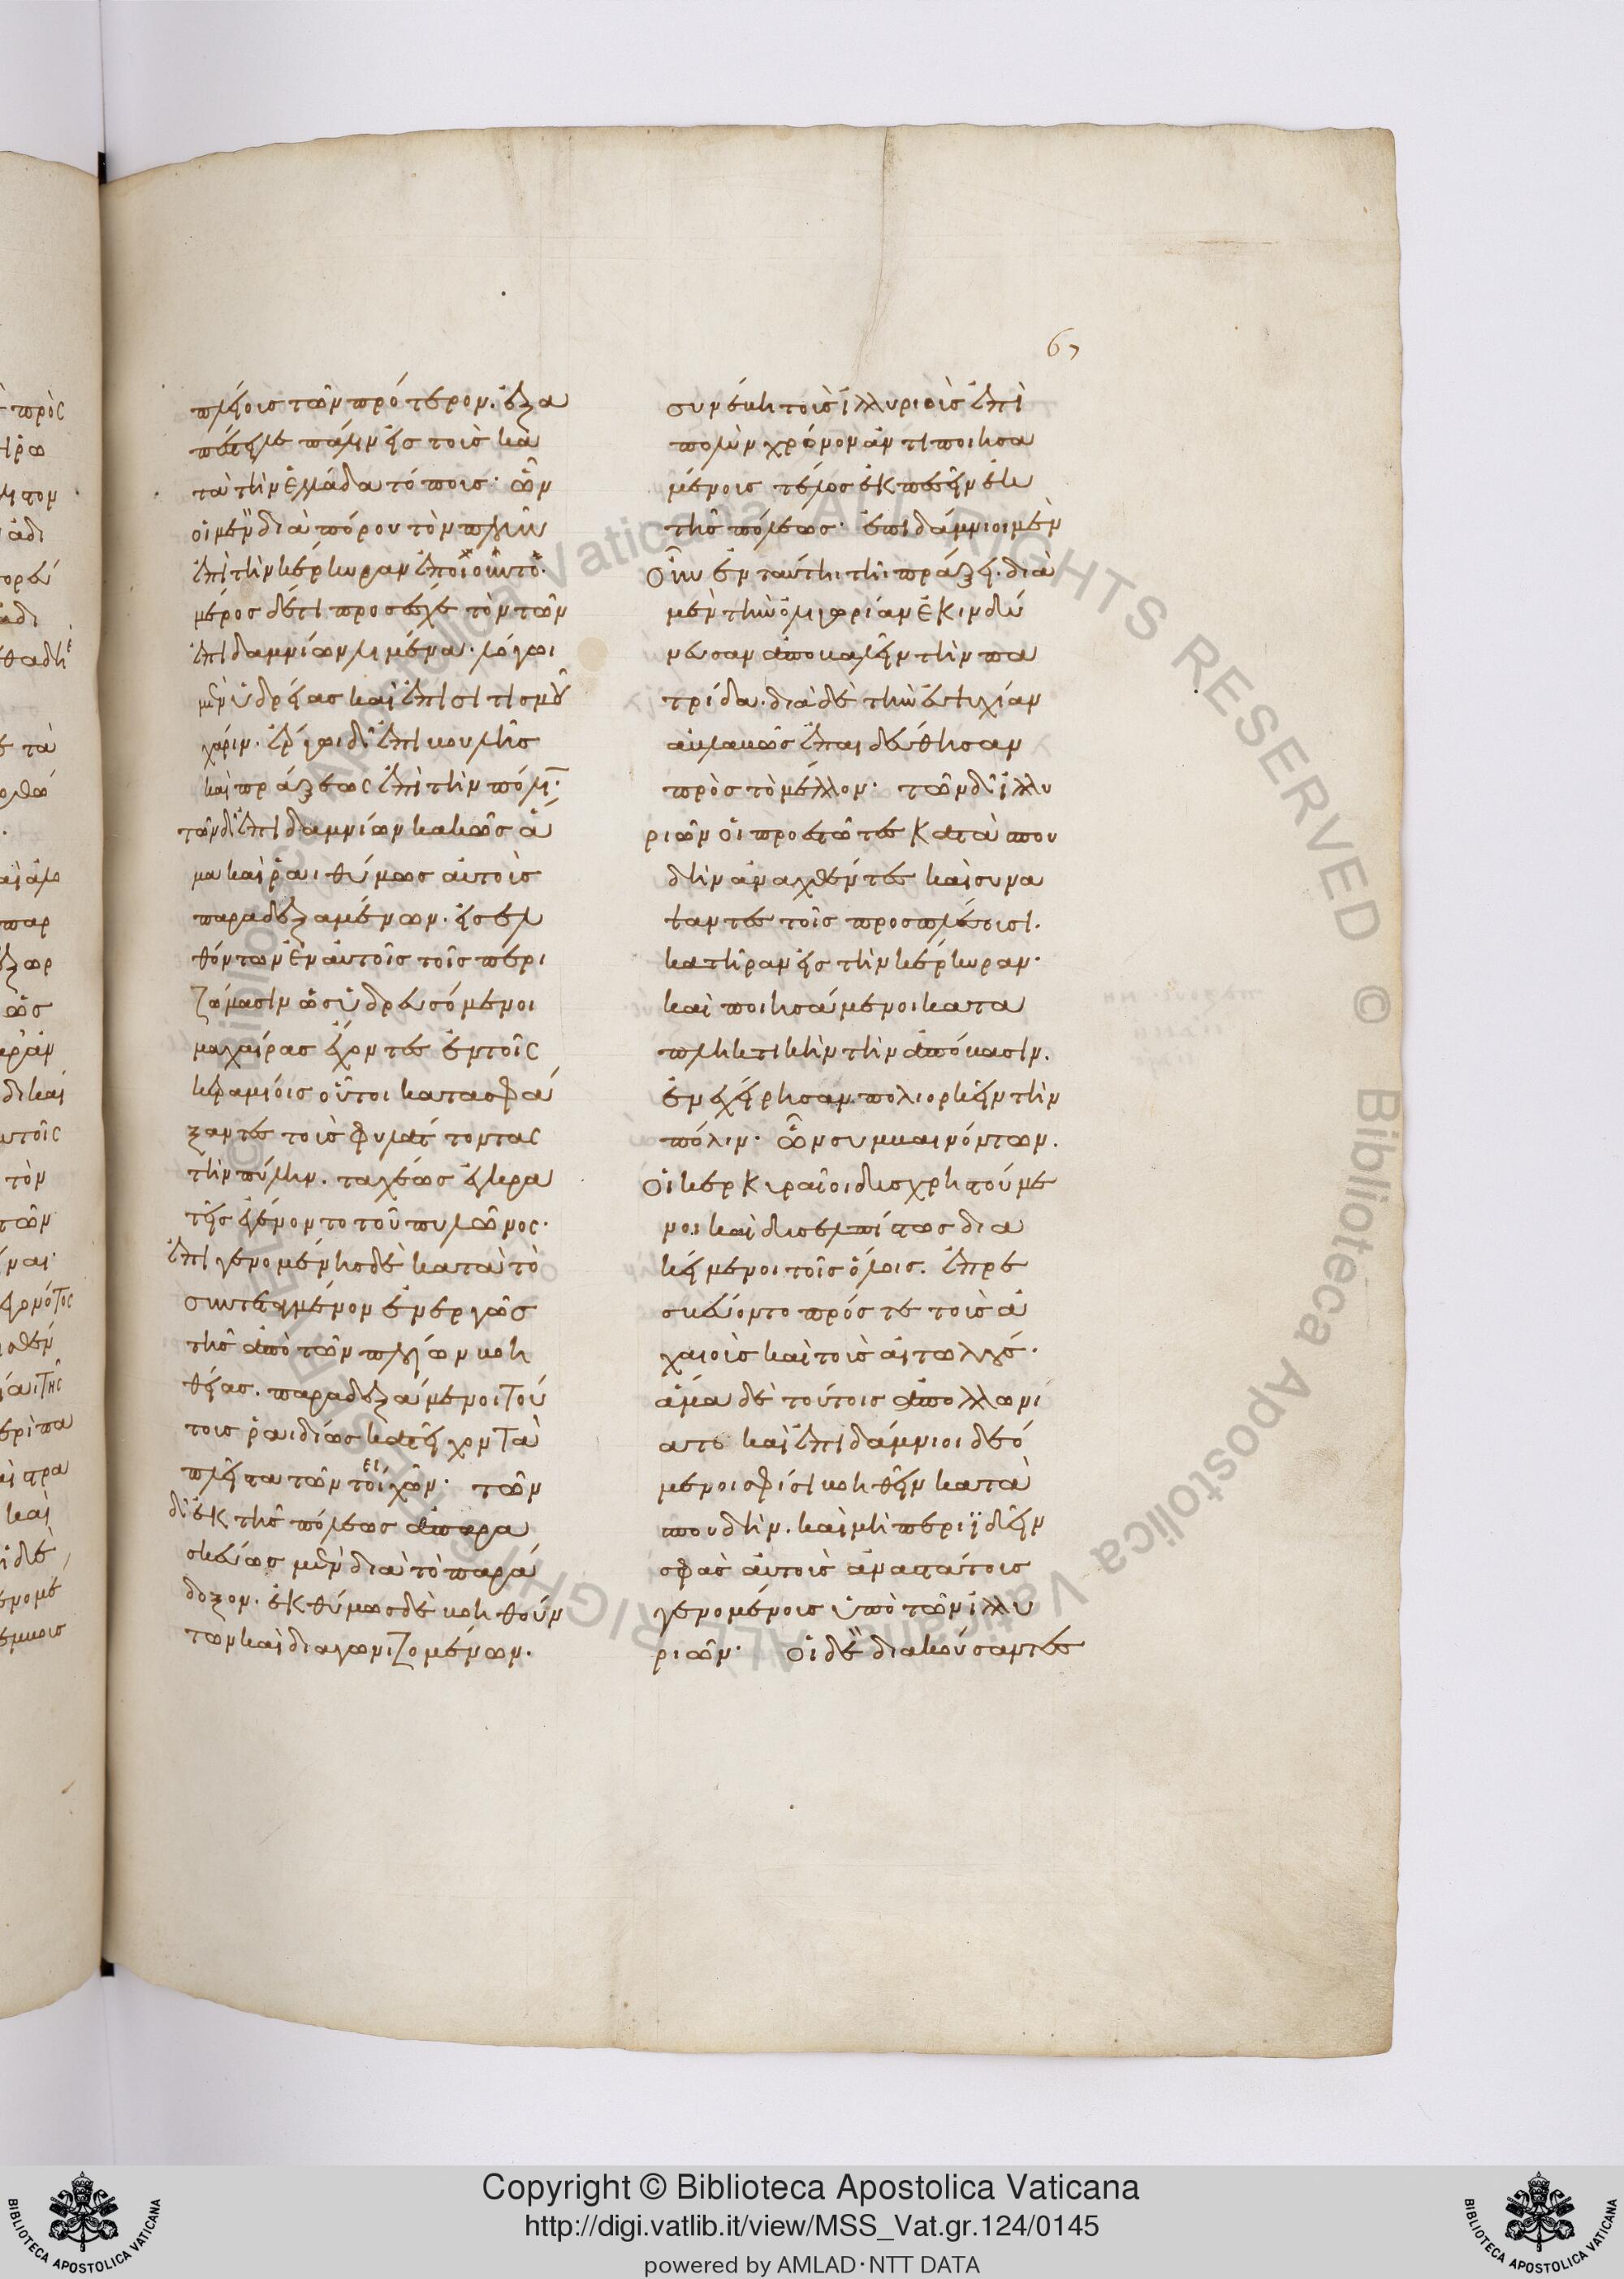 πλείους τῶν πρότερον. ἐξα
πέστειλε πάλιν εἰς τοὺς κα
τὰ τὴν ἑλλάδα τόπους· ὧν
οἱ μὲν διὰ πόρου τὸν πλοῦν
ἐπὶ τὴν κέρκυραν ἐποιοῦντο·
μέρος δέ τι προσέσχε τὸν τῶν
ἐπιδαμνίων λιμένα· λόγωι
μὲν ὑδρείας καὶ ἐπισιτισμοῦ
χάριν. ἔργωι δ' ἐπιβουλῆς
καὶ πράξεως ἐπὶ τὴν πόλιν·
τῶν δ' ἐπιδαμνίων κακῶς ἅ
μα καὶ ῥαιθύμως αὐτοὺς
παραδεξαμένων. εἰσελ
θόντων ἐν αὐτοῖς τοῖς περι
ζώμασιν ὡς ὑδρευσόμενοι
μαχαίρας ἔχοντες ἐν τοῖς
κεραμίοις οὗτοι κατασφά
ξαντες τοὺς φυλάττοντας
τὴν πύλην. ταχέως ἐγκρα
τεῖς ἐγένοντο τοῦ πυλῶνος·
ἐπιγενομένης δὲ κατὰ τὸ
συντεταγμένον ἐνεργῶς
τῆς ἀπὸ τῶν πλοίων βοη
θείας. παραδεξάμενοι τού
τοις ῥαιδίως κατεῖχον τὰ
πλεῖστα τῶν τοίχῶν· τῶν
δ' ἐκ τῆς πόλεως ἀπαρα
σκεύως μὲν διὰ τὸ παρά
δοξον. ἐκθύμως δὲ βοηθούν
των καὶ διαγωνιζομένων.
67
συνέβη τοὺς ἰλλυριοὺς ἐπὶ
πολὺν χρόνον ἀντιποιησα
μένους τέλος ἐκπεσεῖν ἐκ
τῆς πόλεως· ἐπιδάμνιοι μὲν
οὖν ἐν ταύτηι τῆι πράξει. διὰ
μὲν τὴν ὀλιγωρίαν ἐκινδύ
νευσαν ἀποβαλεῖν τὴν πα
τρίδα. διὰ δὲ τὴν εὐψυχίαν
ἀβλαβῶς ἐπαιδεύθησαν
πρὸς τὸ μέλλον· τῶν δ' ἰλλυ
ριῶν οἱ προεστῶτες κατὰ σπου
δὴν ἀναχθέντες καὶ συνά
ψαντες τοῖς προσπλέουσι.
κατῆραν εἰς τὴν κέρκυραν·
καὶ ποιησάμενοι κατα
πληκτικὴν τὴν ἀπόβασιν.
ἐνεχείρησαν πολιορκεῖν τὴν
πόλιν· ὧν συμβαινόντων.
οἱ κερκυραῖοι δυσχρηστούμε
νοι καὶ δυσελπίστως δια
κείμενοι τοῖς ὅλοις. ἐπρε
σβεύοντο πρός τε τοὺς ἀ
χαιοὺς καὶ τοὺς αἰτωλούς·
ἅμα δὲ τούτοις ἀπολλωνι
αται καὶ ἐπιδάμνιοι δεό
μενοι σφίσι βοηθεῖν κατὰ
σπουδήν. καὶ μὴ περιϊδεῖν
σφᾶς αὐτοὺς ἀναστάτους
γενομένους ὑπὸ τῶν ἰλλυ
ριῶν· οἱ δὲ διακούσαντες
Copyright © Biblioteca Apostolica Vaticana
http://digi.vatlib.it/view/MSS_Vat.gr.124/0145
powered by AMLAD·NTT DATA
BIBLIOTECA APOSTOLICA VATICANA
BIBLIOTECA APOSTOLICA VATICANA